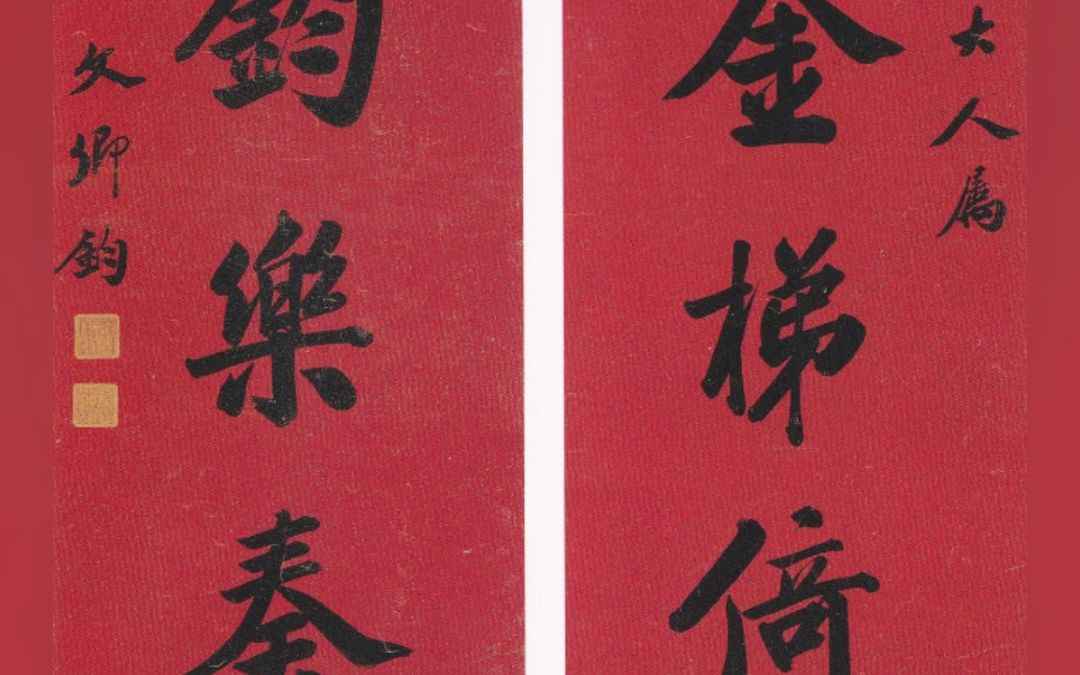 大人属
金梯倚
鈞樂奏
文卿鈞